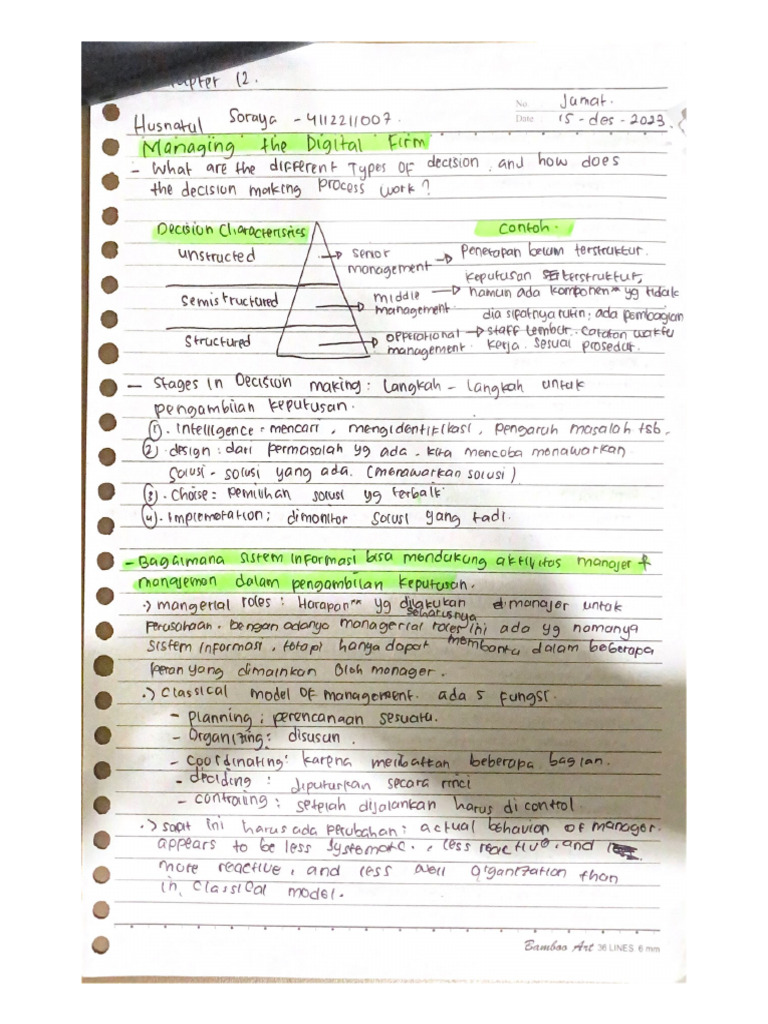 Chapter 12.
No. Jumat.
Husnatul Soraya - 4112211007.
Date 15-des-2023
Managing the Digital Firm
- What are the different types of decision, and how does
the decision making process work?
Decision Characteristics
Contoh.
unstructed → senior management → Penetapan belum terstruktur.
semistructured → middle management → keputusan terstruktur, namun ada komponen" yg tidak
dia sipatnya rutin; ada pembagian
Structured → operational management → staff lembur. Catatan waktu
kerja. sesuai prosedur.
- Stages in Decision making: Langkah-langkah untuk
pengambilan keputusan.
1. Intelligence = mencari, mengidentifikasi, pengaruh masalah tsb.
2. design: dari permasalah yg ada. kita mencoba menawarkan
solusi-solusi yang ada. (menawarkan solusi)
3. Choise: pemilihan solusi yg terbaik
4. Implemetation; dimonitor solusi yang tadi.
- Bagaimana sistem informasi bisa mendukung aktivitas manajer &
manajemen dalam pengambilan keputusan.
·> mangerial roles: Harapan" yg dilakukan dimanajer untuk
seharusnya
perusahaan. dengan adanya managerial roles ini ada yg namanya
sistem informasi, tetapi hanya dapat membantu dalam beberapa
peran yang dimainkan oleh manager.
·> Classical model of management. ada 5 fungsi.
- Planning; perencanaan sesuatu.
- Organizing: disusun.
- coordinating: karena melibatkan beberapa bagian.
- deciding: diputuskan secara rinci
- controling; setelah dijalankan harus di control.
·> saat ini harus ada perubahan: actual behavior of manager.
appears to be less systematic, less reactive, and
more reactive, and less well organization than
in classical model.
Bamboo Art 36 LINES 6 mm